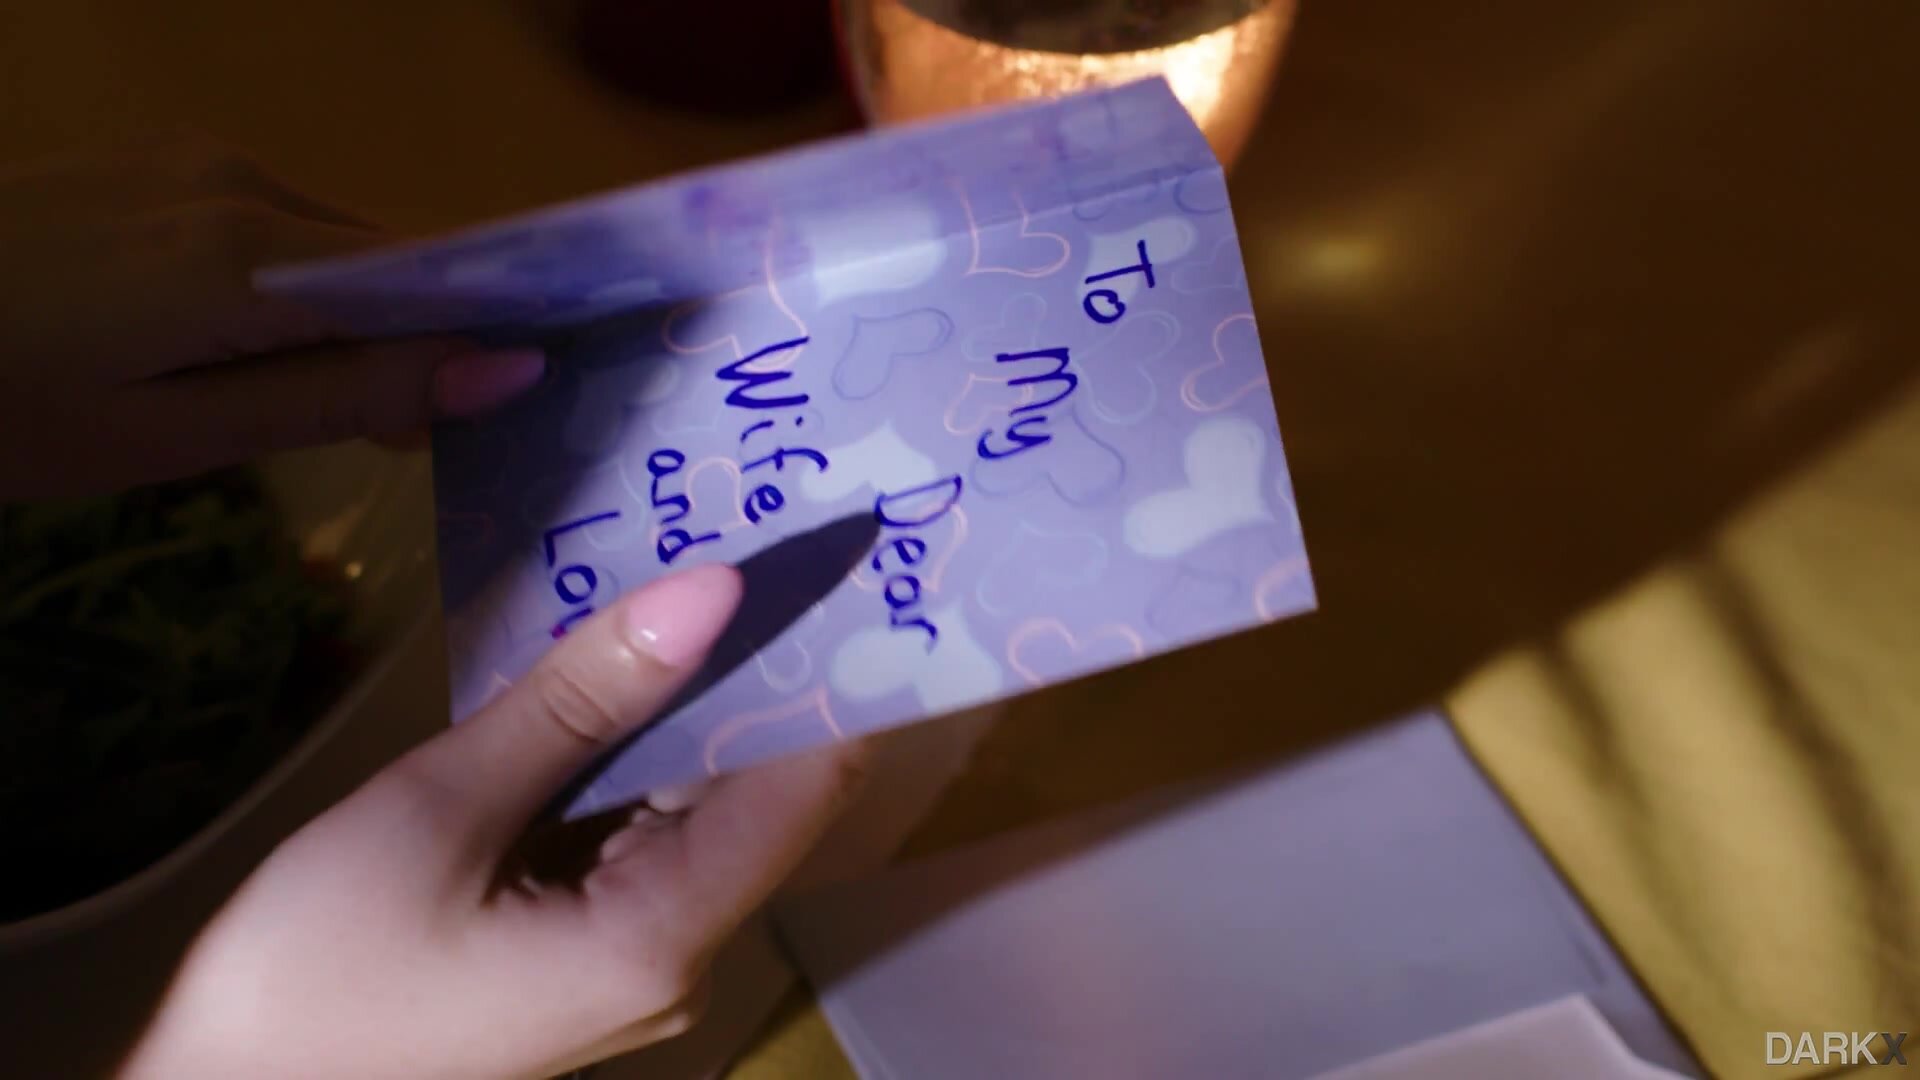 To
My
Dear
Wife
and
DARKX